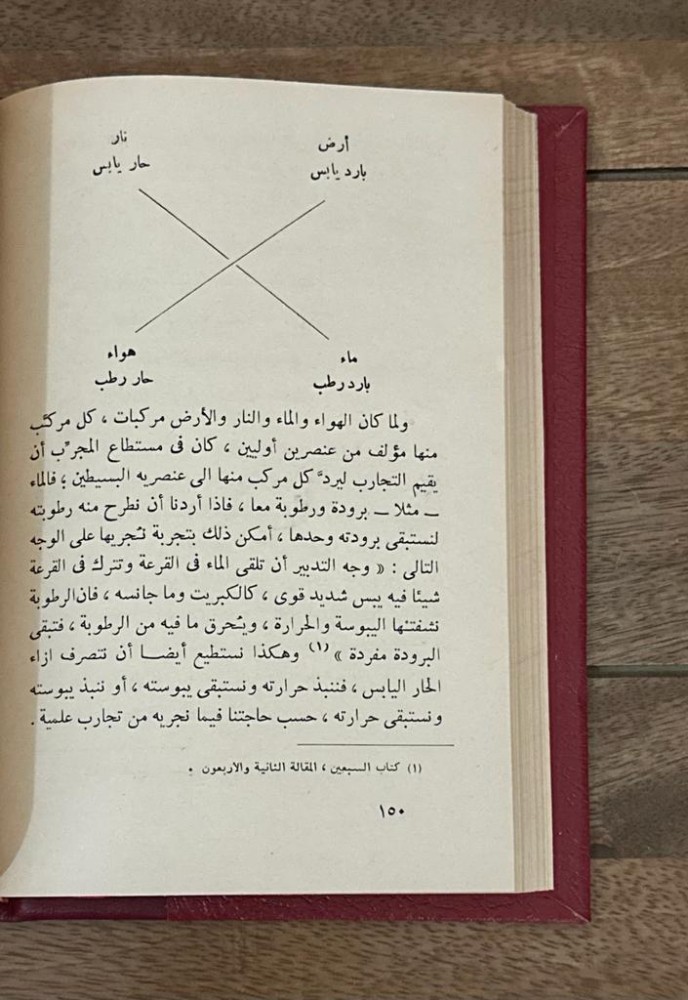 أرض
بارد يابس
نار
حار يابس
ماء
بارد رطب
هواء
حار رطب
ولما كان الهواء والماء والنار والأرض مركبات ، كل مركَّب
منها مؤلف من عنصرين أوليين ، كان فى مستطاع المجرِّب أن
يقيم التجارب ليردَّ كل مركب منها الى عنصريه البسيطين ؛ فالماء
ــ مثلا ــ برودة ورطوبة معا ، فاذا أردنا أن نطرح منه رطوبته
لنستبقى برودته وحدها ، أمكن ذلك بتجربة نُجريها على الوجه
التالى : « وجه التدبير أن تلقى الماء فى القرعة وتترك فى القرعة
شيئا فيه يبس شديد قوى ، كالكبريت وما جانسه ، فان الرطوبة
نشفتها اليبوسة والحرارة ، ويُحرق ما فيه من الرطوبة ، فتبقى
البرودة مفردة » (١) وهكذا نستطيع أيضا أن نتصرف ازاء
الحار اليابس ، فننبذ حرارته ونستبقى يبوسته ، أو ننبذ يبوسته
ونستبقى حرارته ، حسب حاجتنا فيما نجريه من تجارب علمية .
(١) كتاب السبعين ، المقالة الثانية والاربعون .
١٥٠